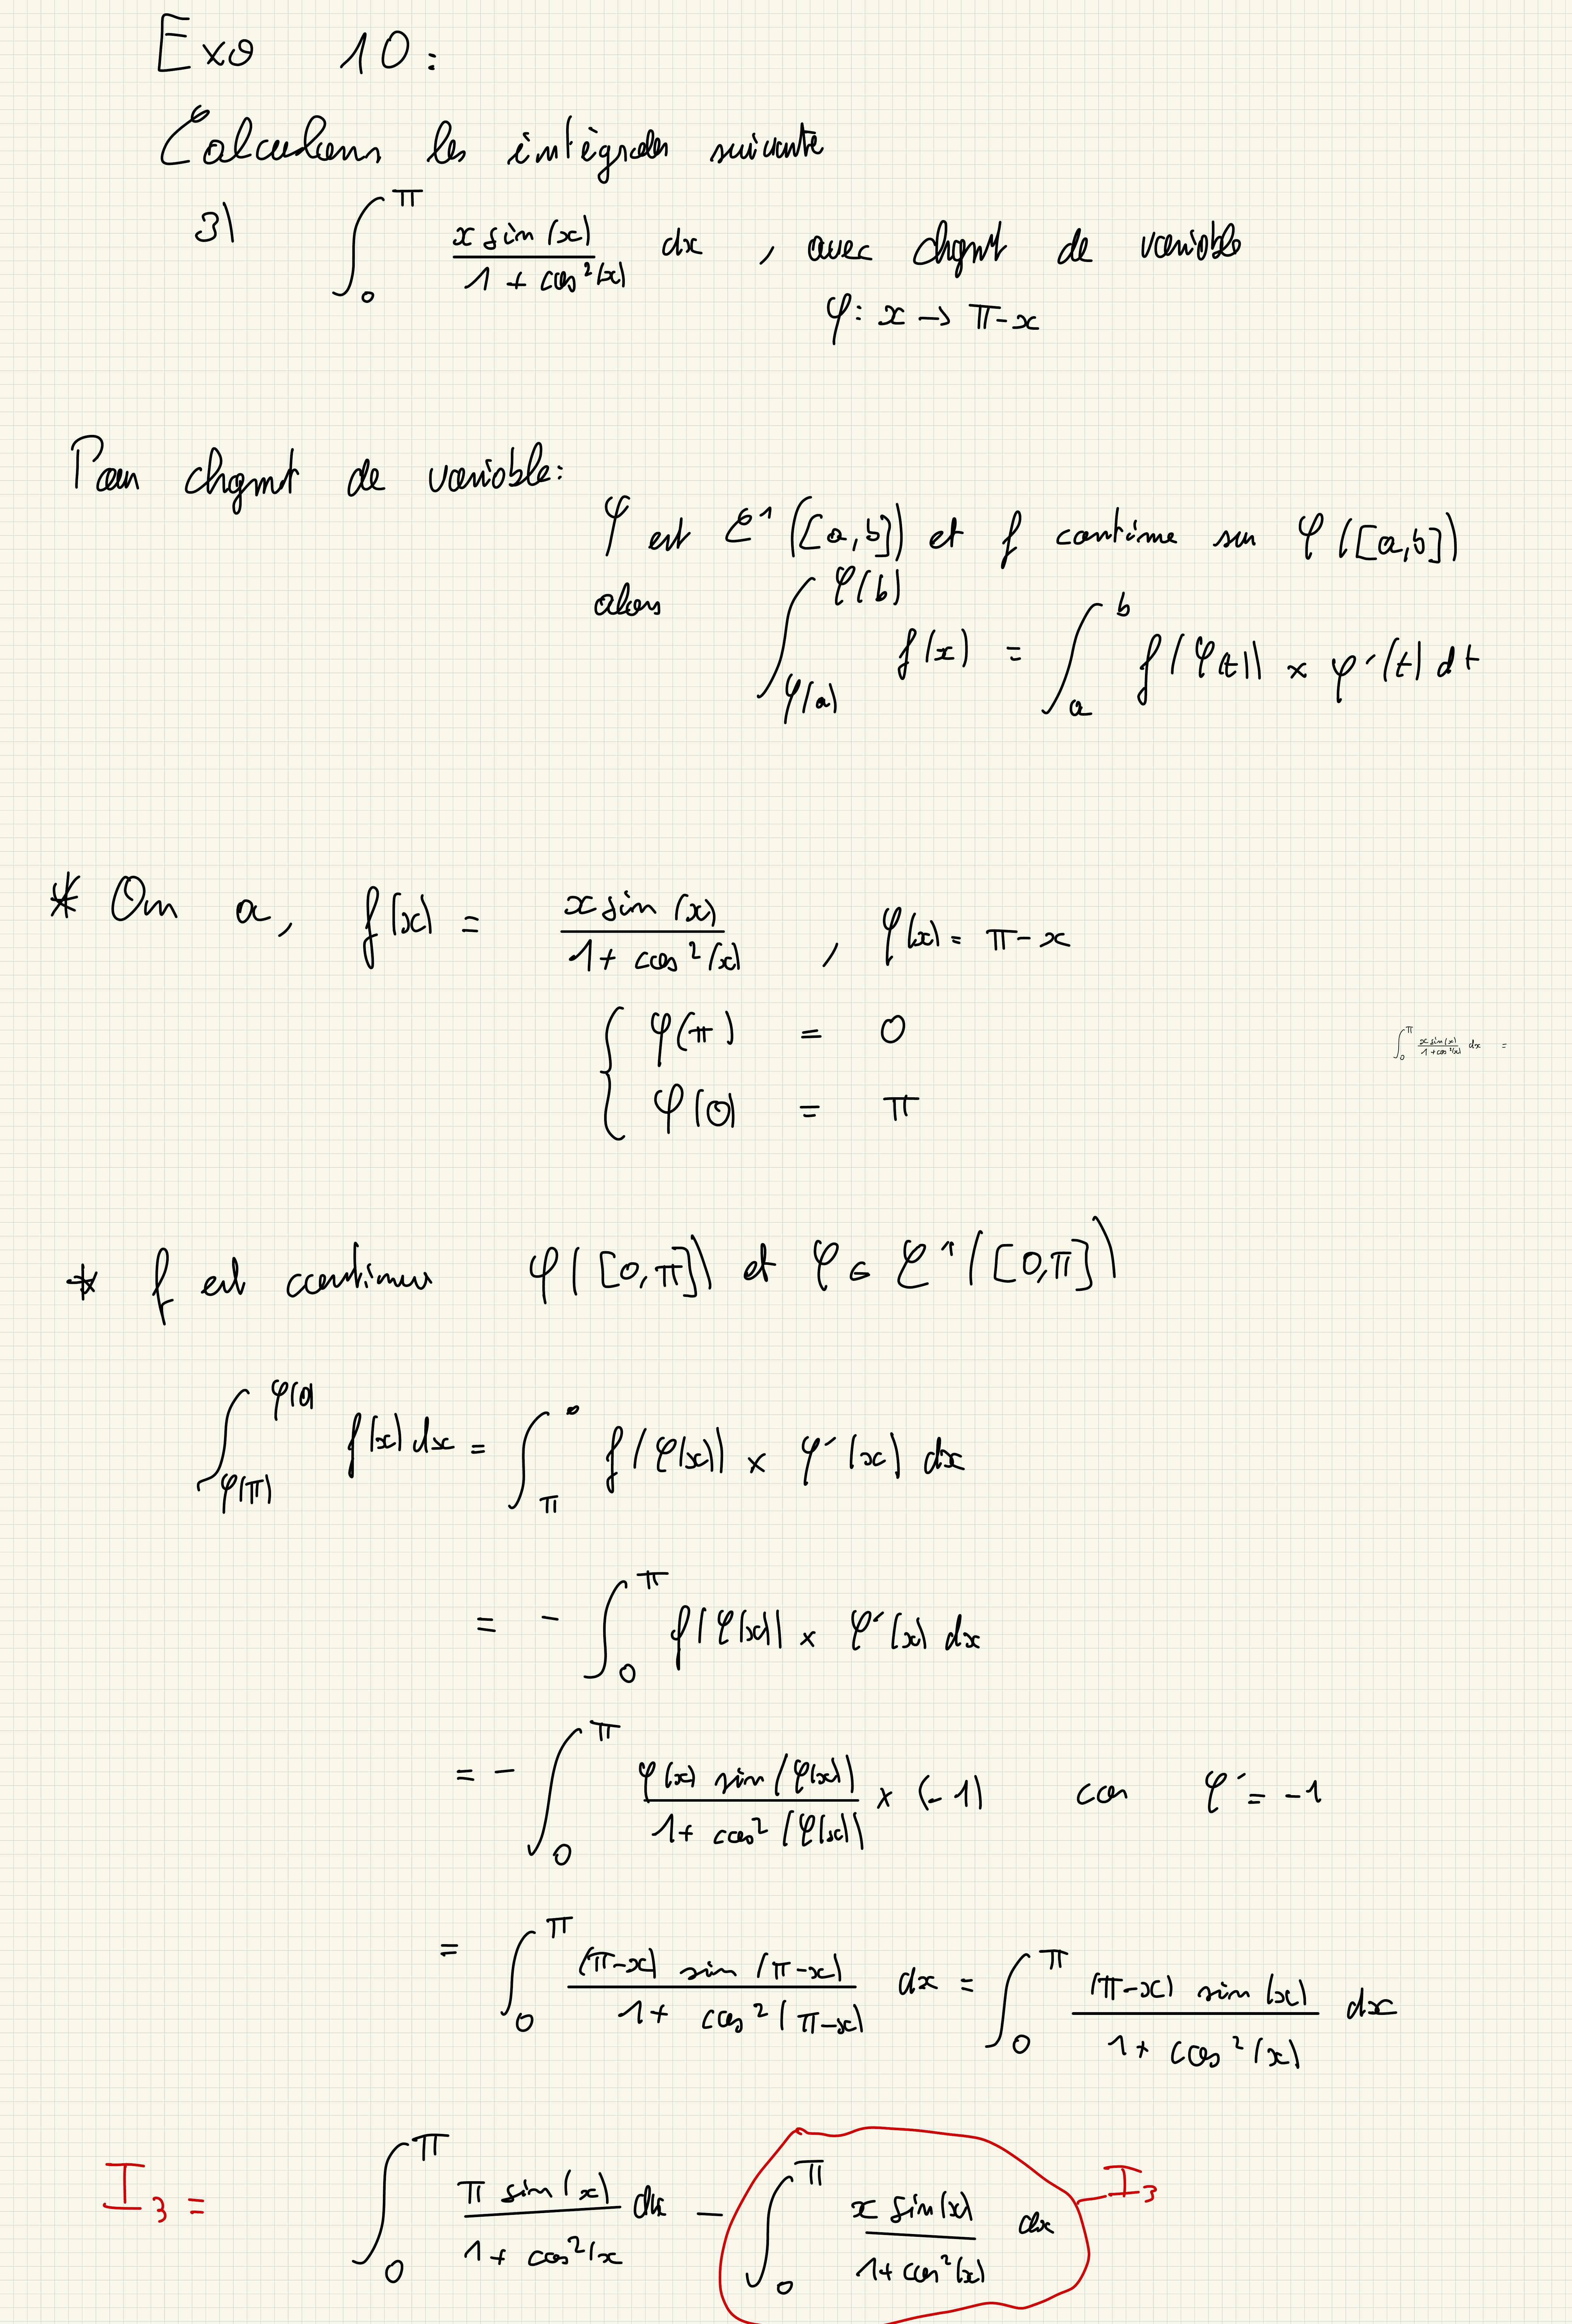 Exo 10 :
Calculons les intègrales suivante
3) ∫_0^π x sin(x) / (1 + cos²(x)) dx , avec chgmt de variable
φ : x → π - x
Par chgmt de variable :
φ est C¹([a,b]) et f continue sur φ([a,b])
alors ∫_φ(a)^φ(b) f(x) = ∫_a^b f(φ(t)) × φ'(t) dt
* On a, f(x) = x sin(x) / (1 + cos²(x)) , φ(x) = π - x
{ φ(π) = 0
φ(0) = π
∫_0^π x sin(x) / (1 + cos²(x)) dx =
* f est continue φ([0,π]) et φ ∈ C¹([0,π])
∫_φ(π)^φ(0) f(x) dx = ∫_π^0 f(φ(x)) × φ'(x) dx
= - ∫_0^π f(φ(x)) × φ'(x) dx
= - ∫_0^π φ(x) sin(φ(x)) / (1 + cos²(φ(x))) × (-1) car φ' = -1
= ∫_0^π (π-x) sin(π-x) / (1 + cos²(π-x)) dx = ∫_0^π (π-x) sin(x) / (1 + cos²(x)) dx
I₃ = ∫_0^π π sin(x) / (1 + cos²(x) dx - ∫_0^π x sin(x) / (1 + cos²(x)) dx I₃